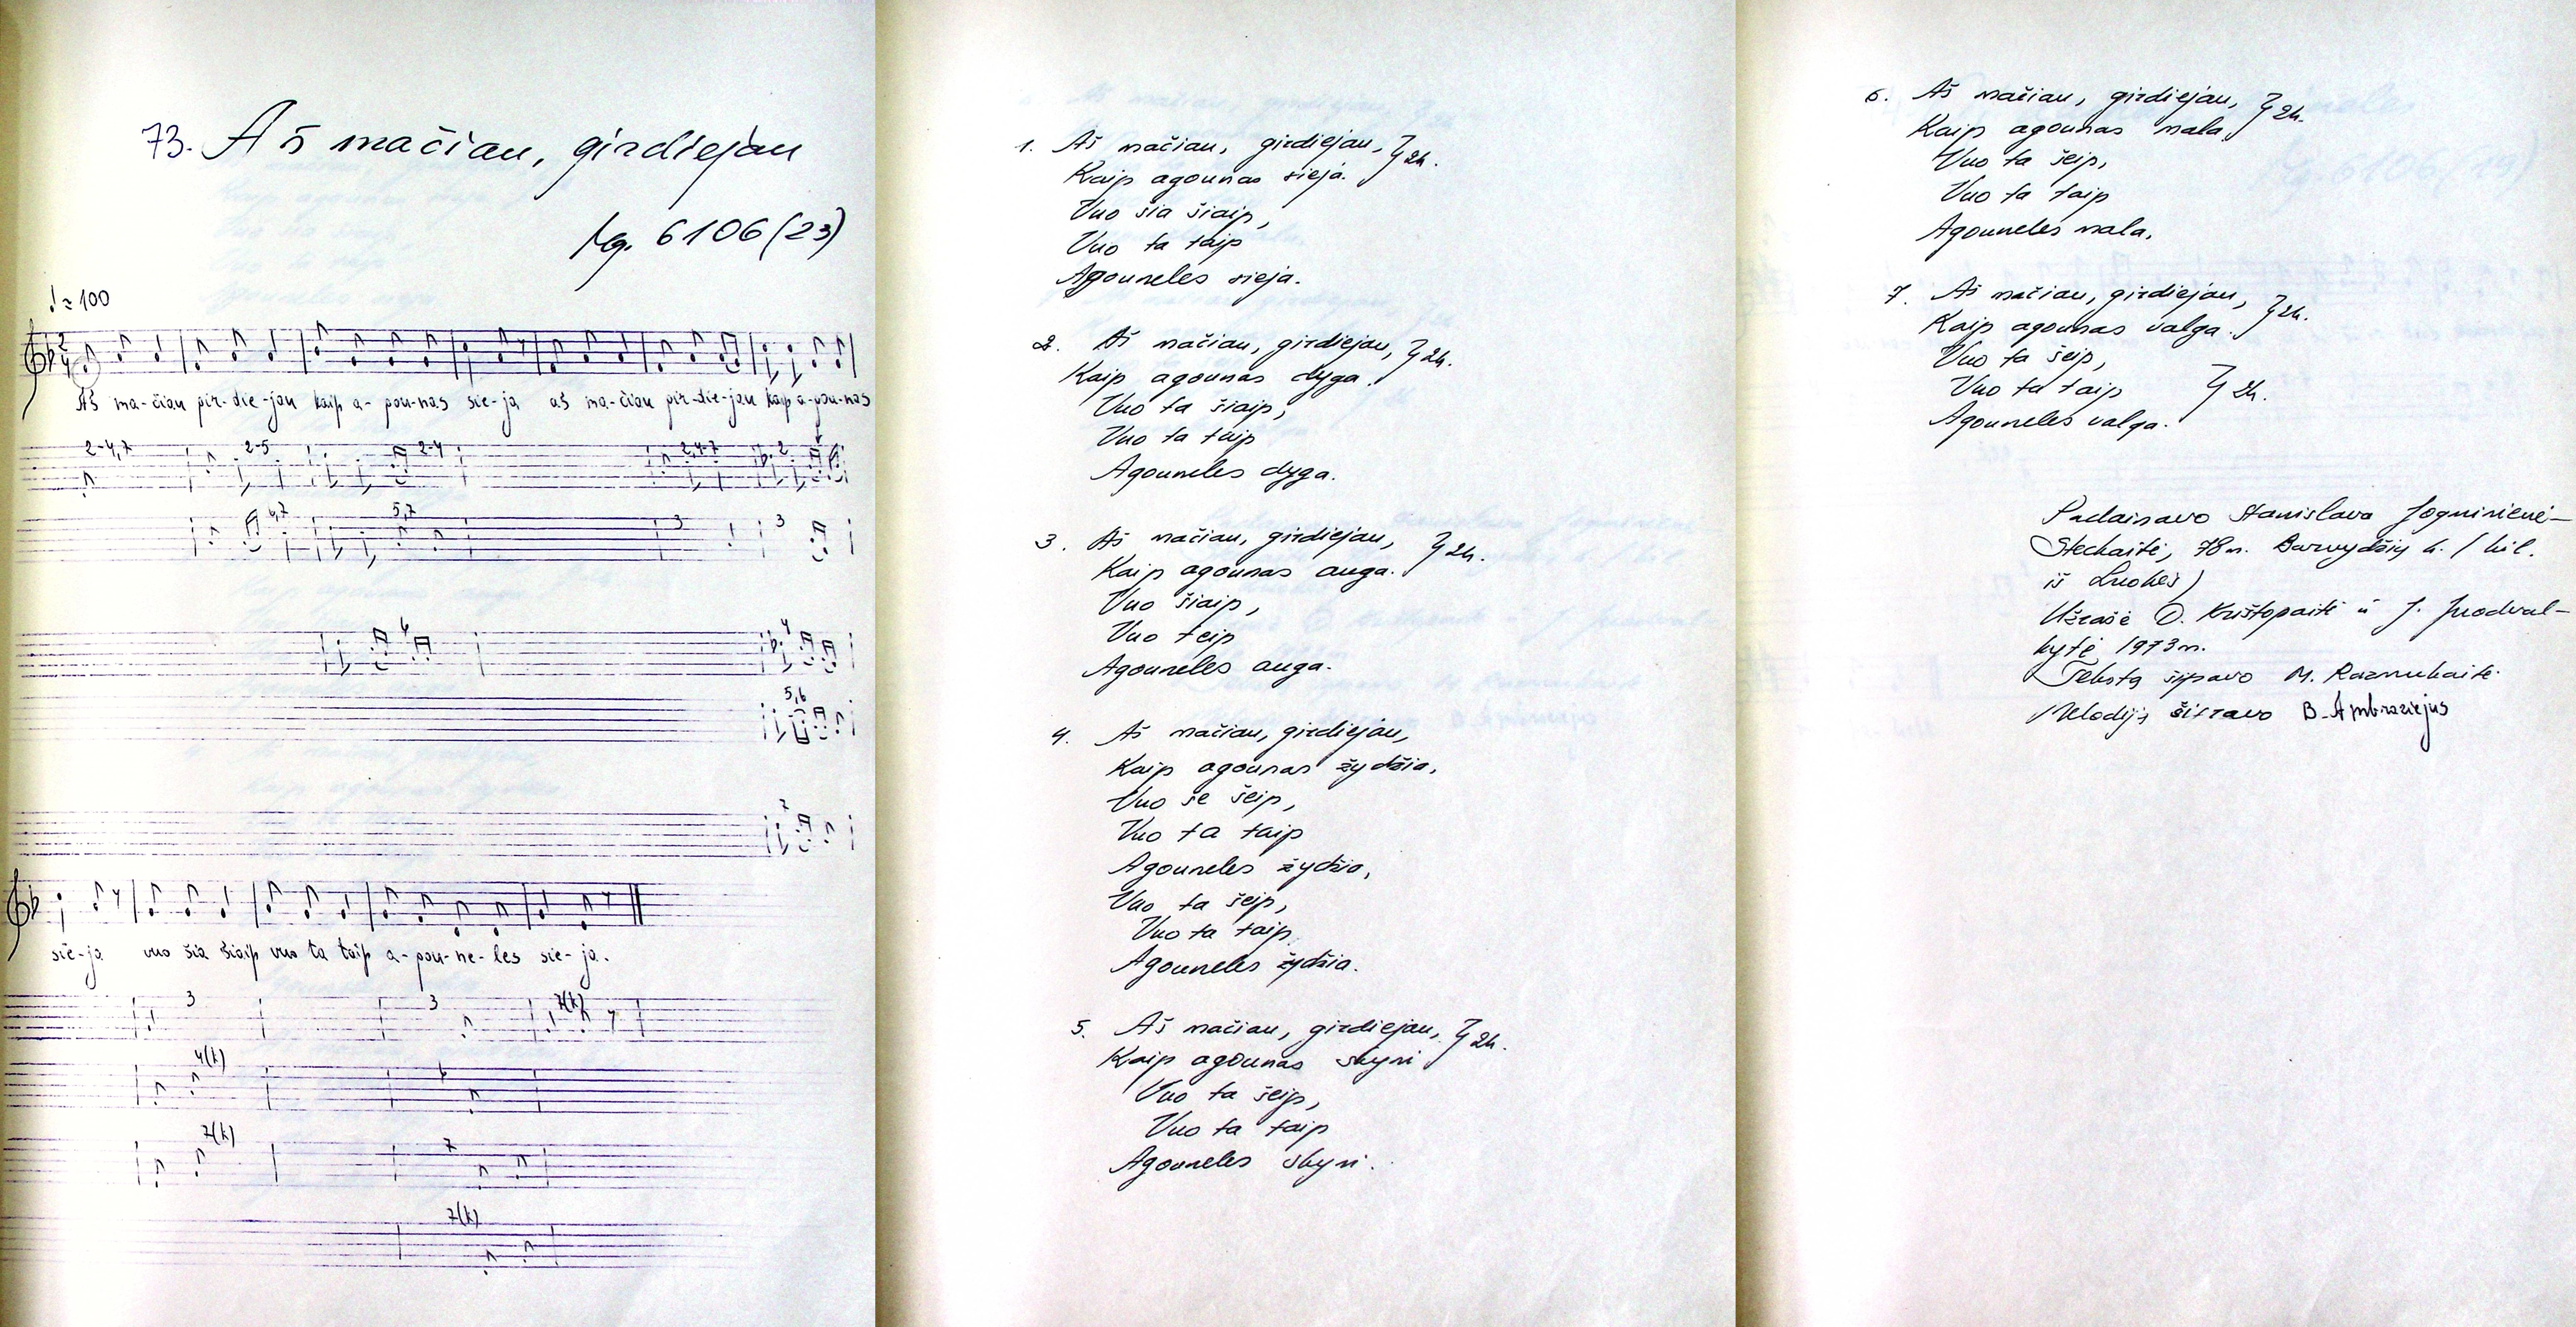 73. Aš mačiau, girdiejau
Mg. 6106(23)
♩ = 100
Aš ma-čiau gir-die-jau kaip a-gou-nas sie-ja aš ma-čiau gir-die-jau kaip a-gou-nas
2-4,7 2-5 2-4 2,4-7 2
6,7 5,7 3 3
6 4
5,6
7
sie-ja vuo šia šiaip vuo ta taip a-gou-ne-les sie-ja.
3 3 7(k)
4(k) 6
7(k) 7
7(k)
1. Aš mačiau, girdiejau, } 2k.
Kaip agounas sieja.
Vuo šia šiaip,
Vuo ta taip
Agouneles sieja.
2. Aš mačiau, girdiejau, } 2k.
Kaip agounas dyga.
Vuo ta šiaip,
Vuo ta taip
Agouneles dyga.
3. Aš mačiau, girdiejau, } 2k.
Kaip agounas auga.
Vuo šiaip,
Vuo teip
Agouneles auga.
4. Aš mačiau, girdiejau,
Kaip agounas žydžia,
Vuo še šeip,
Vuo ta taip
Agouneles žydžia,
Vuo ta šeip,
Vuo ta taip
Agouneles žydžia.
5. Aš mačiau, girdiejau, } 2k.
Kaip agounas skyni
Vuo ta šeip,
Vuo ta taip
Agouneles skyni.
6. Aš mačiau, girdiejau, } 2k.
Kaip agounas mala,
Vuo ta šeip,
Vuo ta taip
Agouneles mala.
7. Aš mačiau, girdiejau, } 2k.
Kaip agounas valga.
Vuo ta šeip,
Vuo ta taip } 2k.
Agouneles valga.
Padainavo Stanislava Jogminienė-
Stechaitė, 78 m. Barvydžių k. / kil.
iš Luokės)
Užrašė D. Krištopaitė ir J. Juodval-
kytė 1973 m.
Tekstą šifravo M. Razmukaitė.
Melodiją šifravo B. Ambraziejus